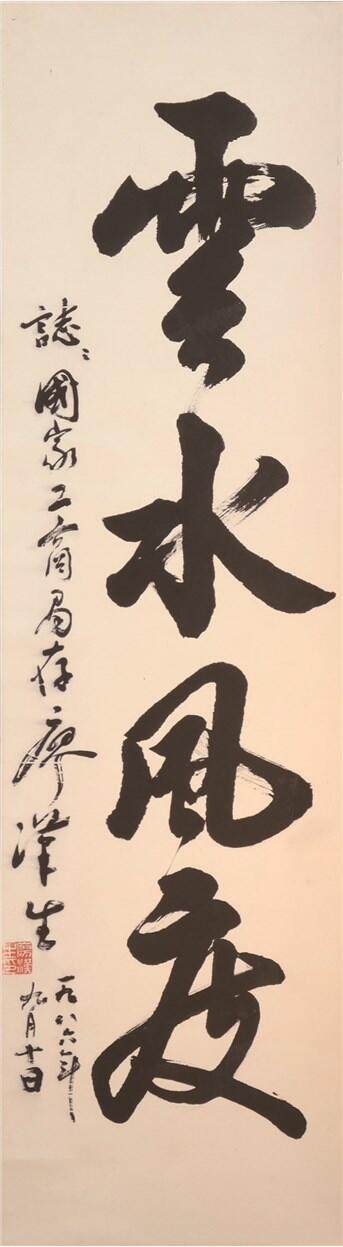 雲水風度
誌:國家工商局存廖漢生
一九八六年
九月十日